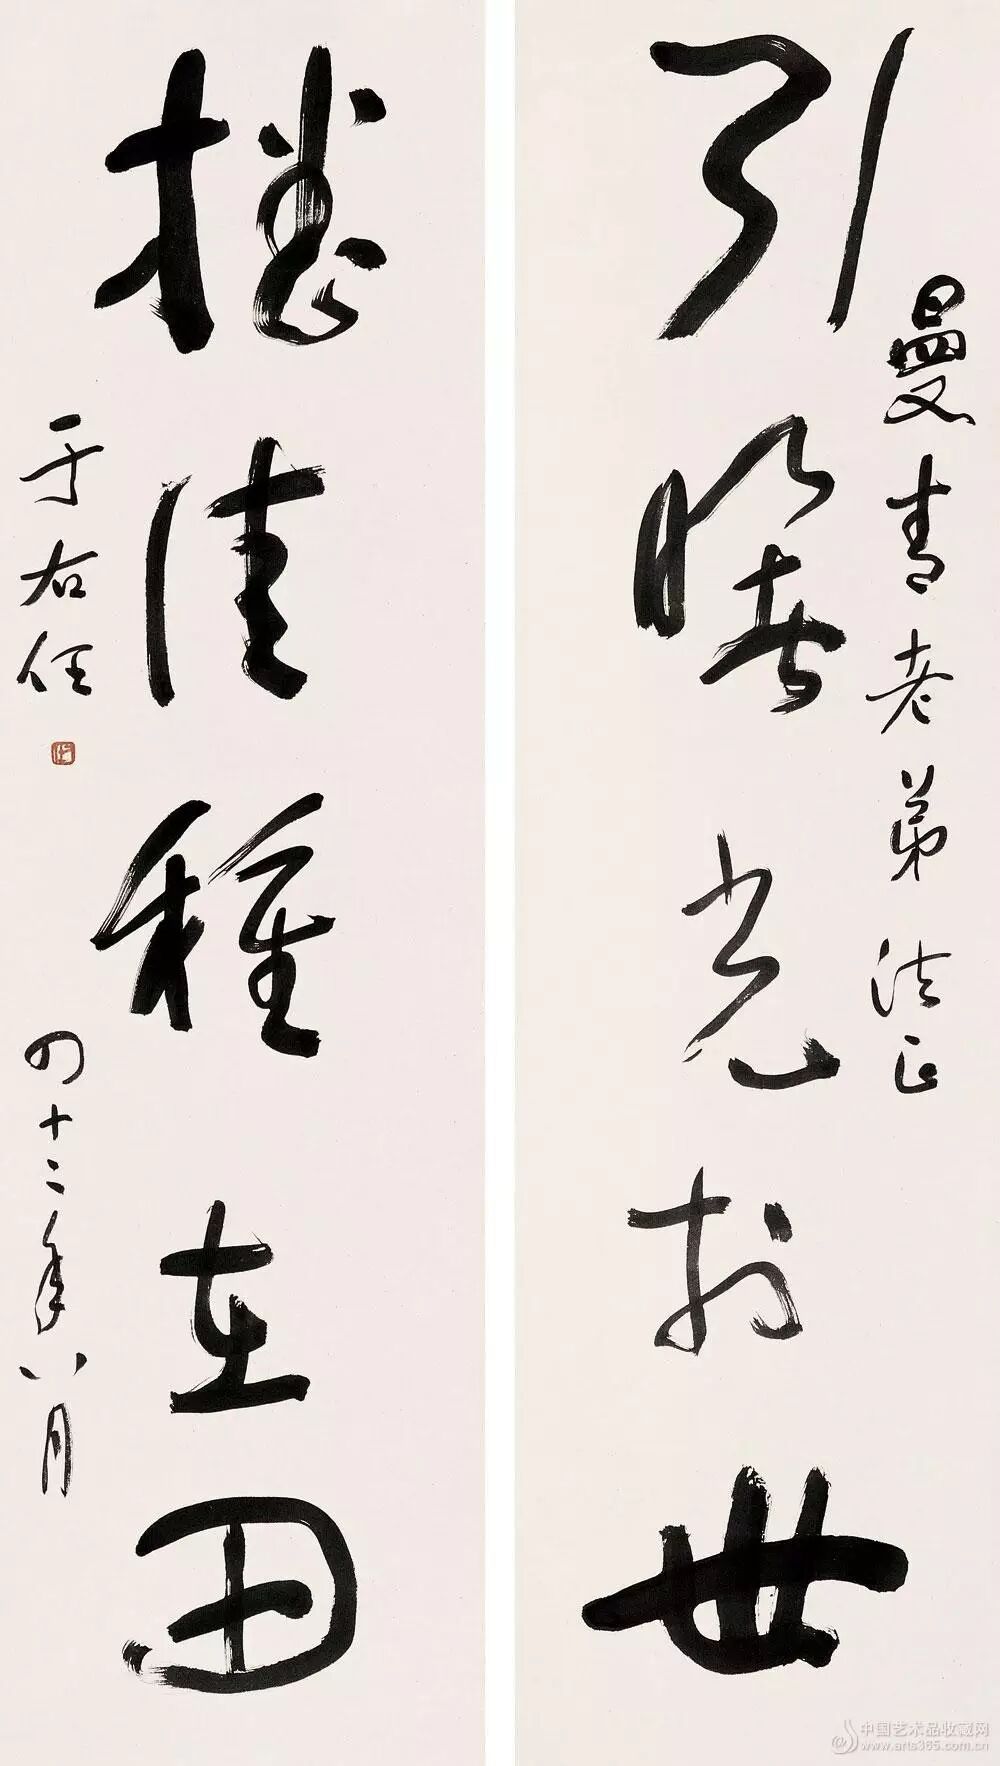 曼青老弟法正
引曙光於世
播佳種在田
于右任
四十二年八月
中国艺术品收藏网
www.arts365.com.cn